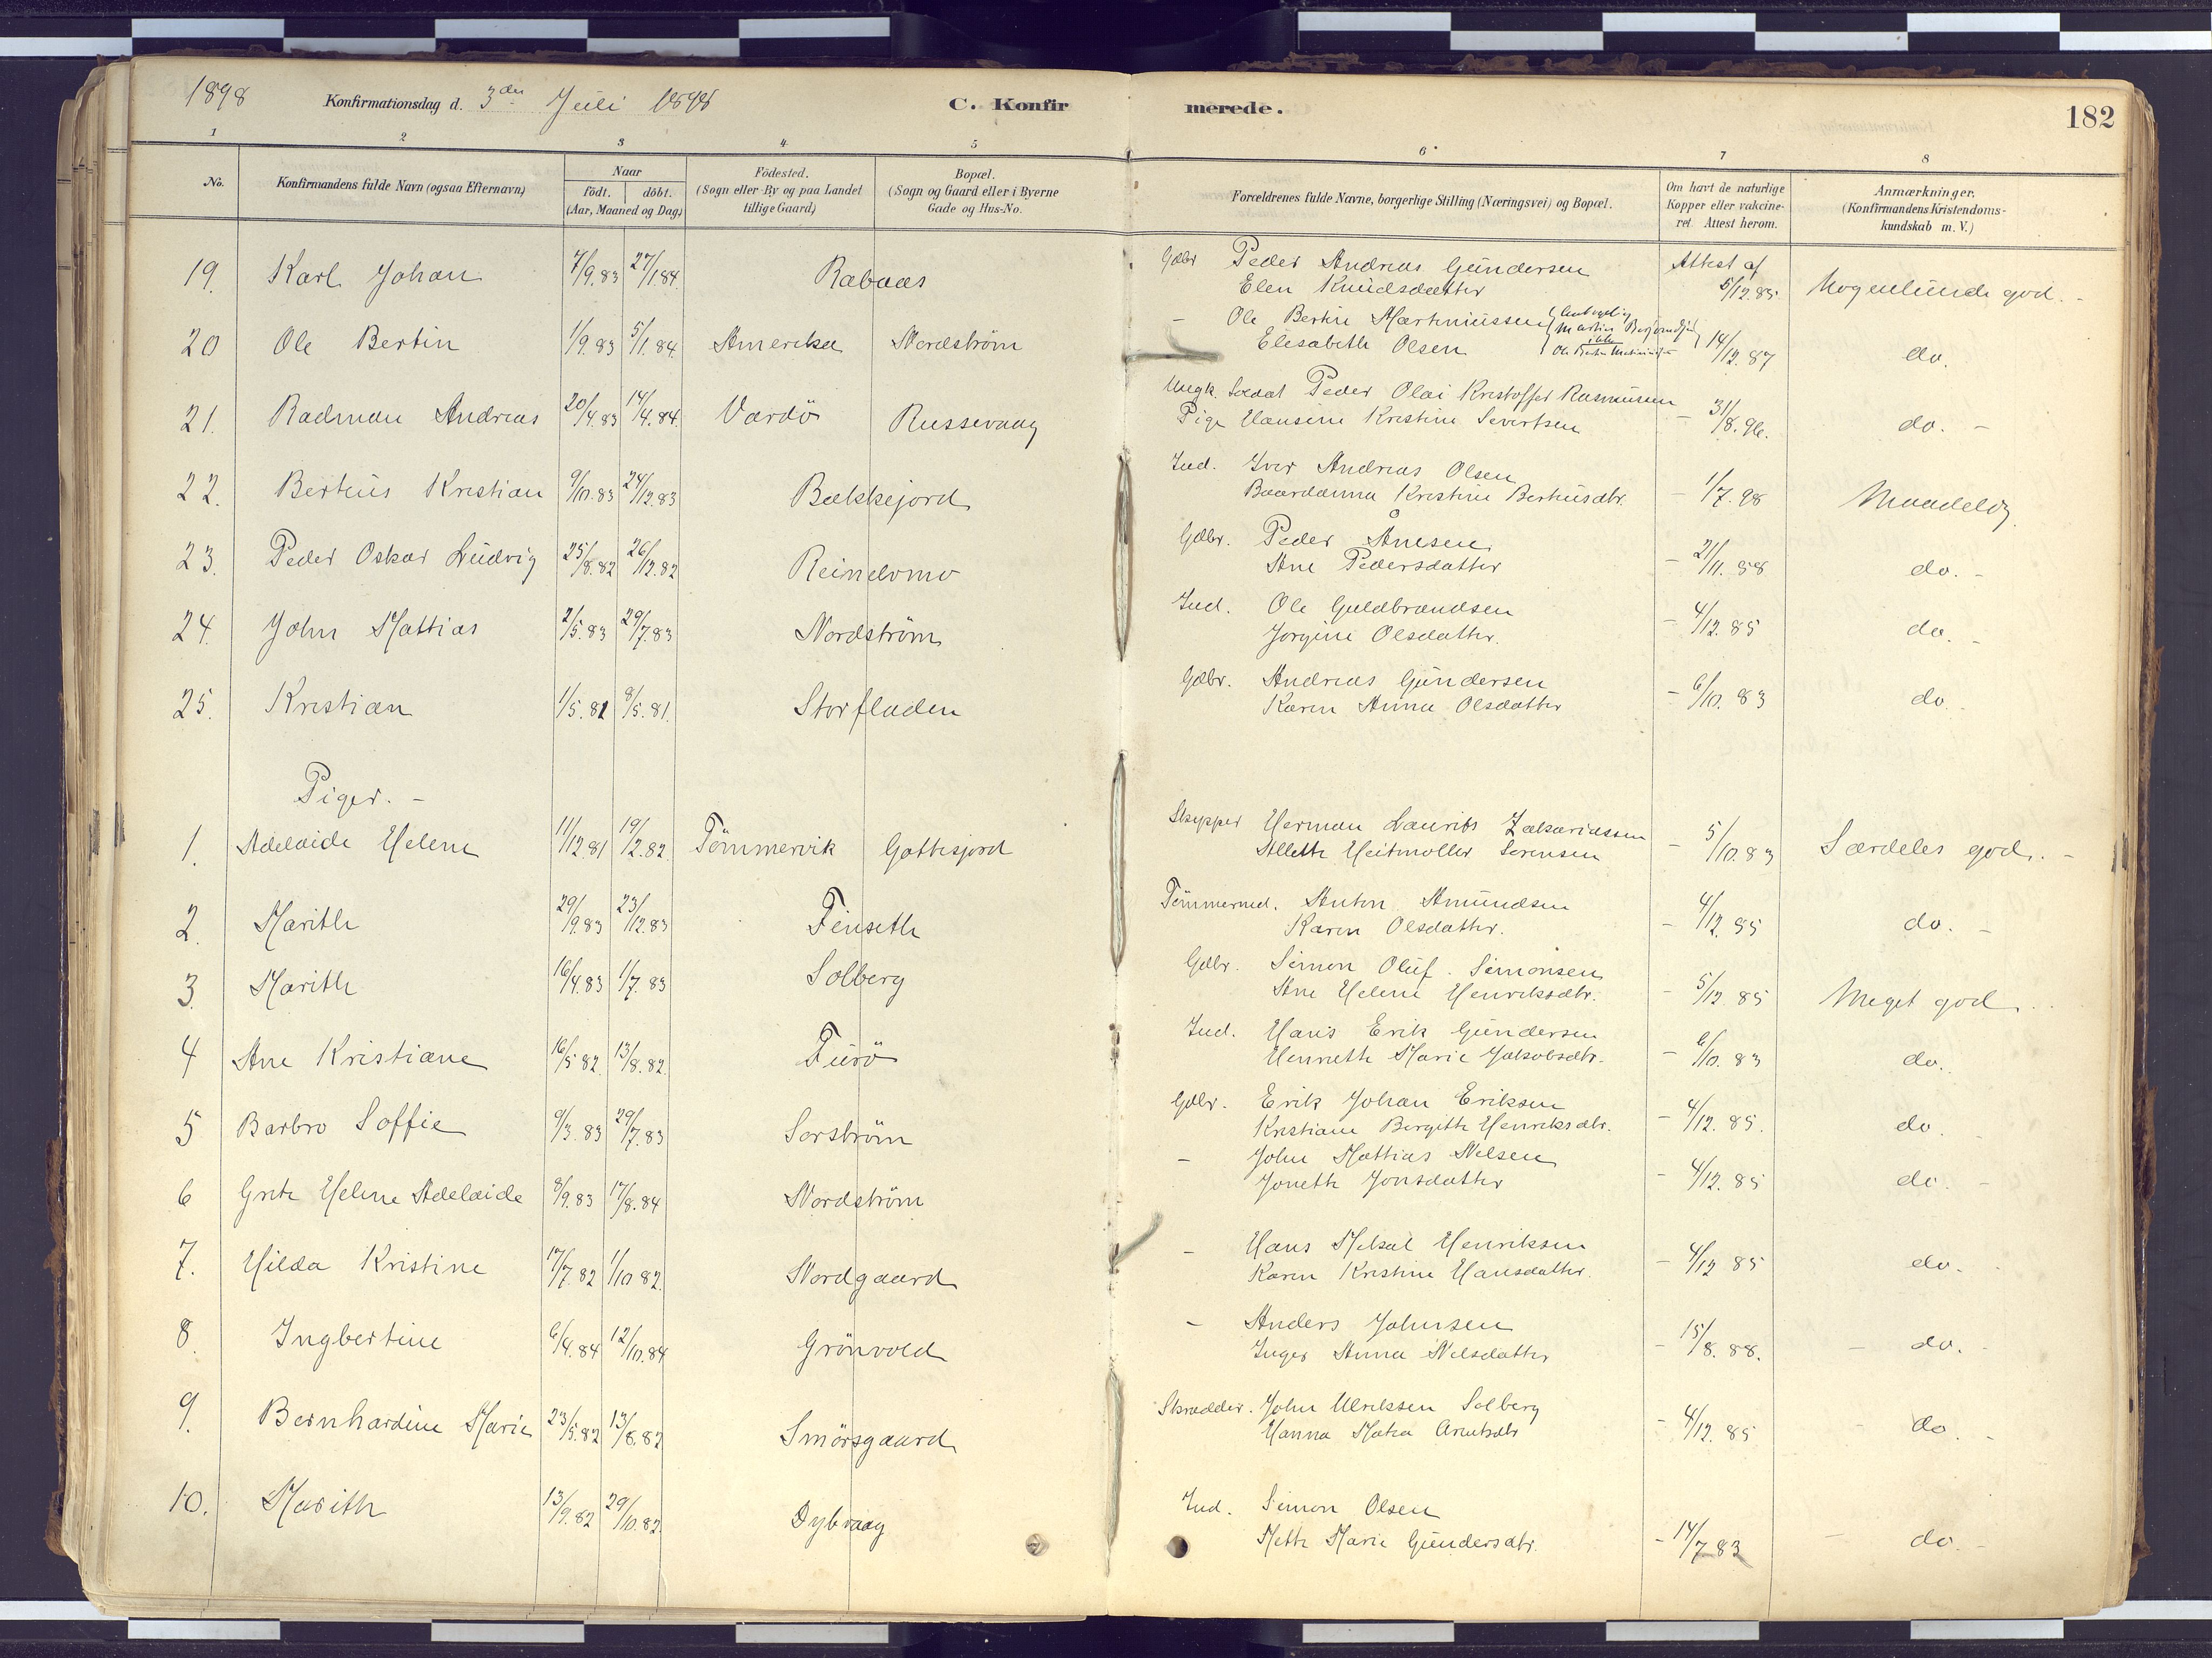 1898 Konfirmationsdag d. 3den Juli 1898 C. Konfirmerede. 182
1 2 3 4 5 6 7 8
No. Konfirmandens fulde Navn (ogsaa Efternavn) Naar födt. döbt. (Aar, Maaned og Dag) Födested. (Sogn eller By og paa Landet tillige Gaard) Bopæl. (Sogn og Gaard eller i Byerne Gade og Hus-No. Forældrenes fulde Navne, borgerlige Stilling (Næringsvei) og Bopæl. Om havt de naturlige Kopper eller vakcineret. Attest herom. Anmærkninger. (Konfirmandens Kristendomskundskab m. V.)
19. Karl Johan 7/9.83 27/1.84. Rabaas Gdbr Peder Andreas Gundersen Attest af
Elen Knudsdatter 5/12.85. Nogenlunde god. -
20 Ole Bertin 1/9.83 5/1.84. Amerika Nordström - Ole Bertin Martinussen
Elisabeth Olsen 14/12.87 do.
21. Radman Andreas 20/4.83 14/4.84. Vardö Russevaag Ungk. Soldat Peder Olai Kristoffer Rasmussen
Pige Hansine Kristine Sivertsen - 31/8.96. do. -
22. Bertius Kristian 9/10.83 24/12.83 Bækkejord Ind. Iver Andreas Olsen
Baardanna Kristine Bertiusdtr. - 1/7.98 Maadelig
23. Peder Oskar Ludvig 25/8.82 26/12.82 Reindomo Gdbr. Peder Ånesen
Ane Pedersdatter - 21/11.88 do. -
24. John Mattias 2/5.83 29/7.83 Nordström Ind. Ole Guldbrandsen
Jorgine Olsdatter. - 4/12.85 do. -
25. Kristian 1/5.81 8/5.81. Storfladen Gdbr. Andreas Gundersen
Karen Anna Olsdatter - 6/10.83 do.
Piger. -
1. Adelaide Helene 11/12.81 19/2.82. Tömmervik Gattefjord Skipper Herman Laurits Zakariassen
Allette Heitmoller Sorensen - 5/10.83 Særdeles god. -
2. Marith 29/9.83 23/12.83 Finseth Tömmermd. Anton Amundsen
Karen Olsdatter. - 4/12.85 do. -
3. Marith 16/4.83 1/7.83 Solberg Gdbr. Simon Oluf Simonsen
Ane Helene Henriksdtr. - 5/12.85 Meget god
4 Ane Kristiane 16/5 82. 13/8.82. Turö Ind. Hans Erik Gundersen
Hennette Marie Jakobsdtr. - 6/10.83 do.
5 Barbro Soffie 9/3.83 29/7.83 Sorström Gdbr. Erik Johan Eriksen
Kristiane Bergitte Henriksdtr. - 4/12.85. do.
6 Grete Helene Adelaide 8/9.83 17/8.84 Nordström - John Mattias Nilsen
Jonette Jonsdatter - 4/12.85 do. -
7. Hilda Kristine 17/7.82 1/10 82. Nordgaard - Hans Mikal Henriksen
Karen Kristine Hansdatter. - 4/12 85 do. -
8. Ingbertine 6/4.84 12/10.84 Grönvold - Anders Johnsen
Inger Anna Nilsdatter - 15/8.88. - do. -
9. Bernhardine Marie 23/5.82 13/8.82 Smörsgaard Skrædder. John Ulriksen Solberg
Hanna Maria Arntsdtr - 4/12.85 - do. -
10. Marith 13/9.82 29/10.82. Dybvaag Ind. Simon Olsen
Mette Marie Gundersdtr. - 14/7 83 - do. -